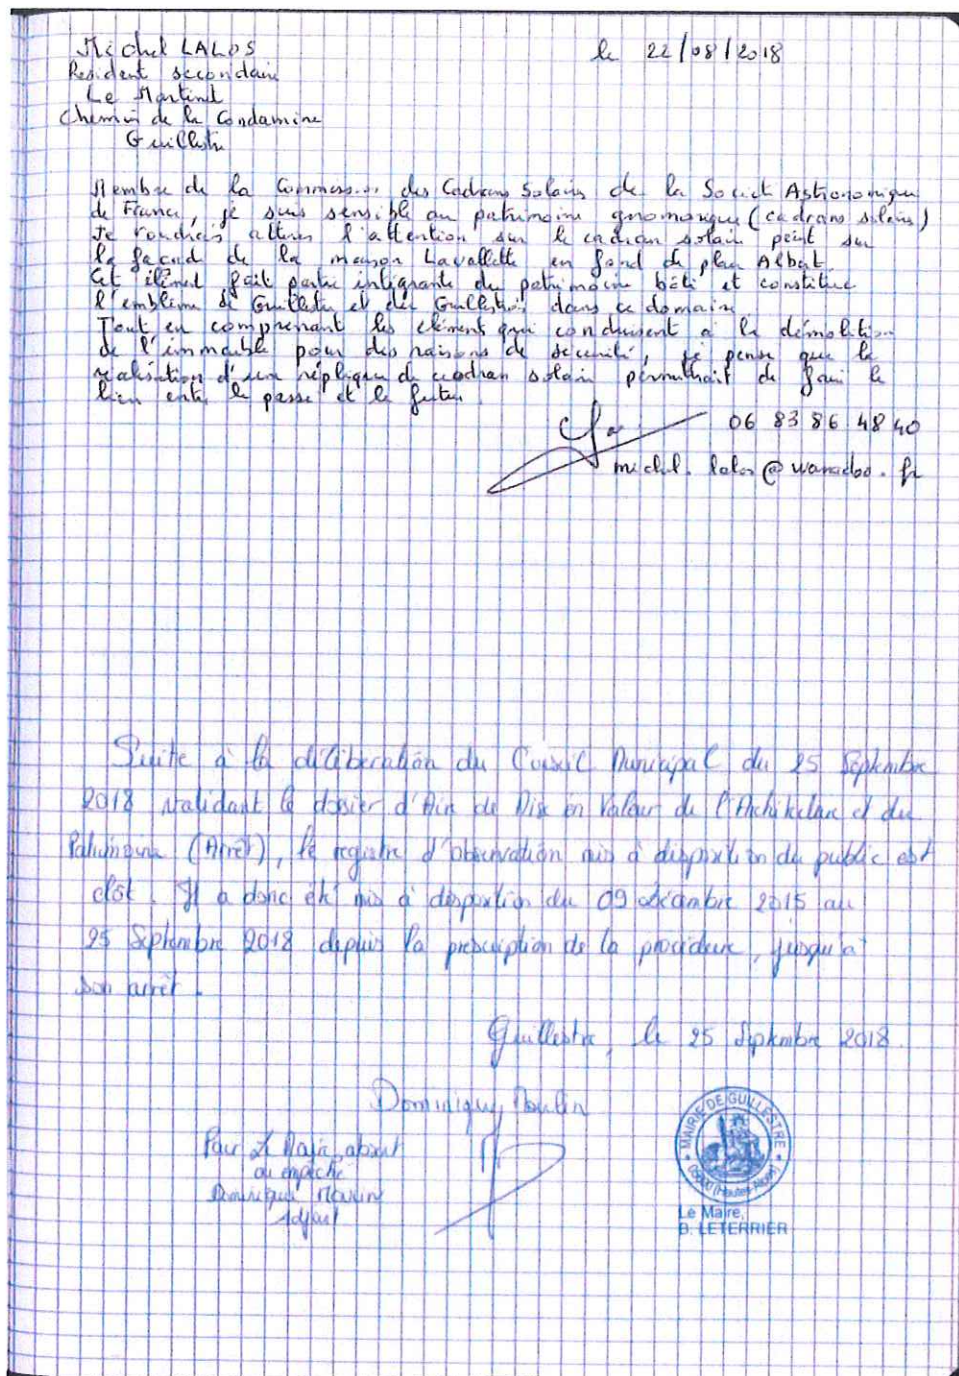 Michel LALOS
le 22/08/2018
Résident secondaire
Le Martinet
Chemin de la Condamine
Guillestre
Membre de la Commission des Cadrans Solaires de la Société Astronomique
de France, je suis sensible au patrimoine gnomonique (cadrans solaires)
Je voudrais attirer l'attention sur le cadran solaire peint sur
la façade de la maison Lavallette en fond de place Albert
Cet élément fait partie intégrante du patrimoine bâti et constitue
l'emblème de Guillestre et du Guillestrois dans ce domaine
Tout en comprenant les élément qui conduisent a la démolition
de l'immeuble pour des raisons de sécurité, je pense que la
réalisation d'une réplique du cadran solaire permettrait de faire le
lien entre le passé et le futur.
06 83 86 48 40
michel.lalos@wanadoo.fr
Suite à la délibération du Conseil Municipal du 25 Septembre
2018 validant le dossier d'Aire de Mise en Valeur de l'Architecture et du
Patrimoine (Arrêt), le registre d'observation mis à disposition du public est
clôt. Il a donc été mis à disposition du 09 décembre 2015 au
25 Septembre 2018 depuis la prescription de la procédure, jusqu'à
son arrêt.
Guillestre, le 25 Septembre 2018.
Dominique Moulin
Pour le Maire absent
ou empêché
Dominique Moulin
Adjoint
MAIRIE DE GUILLESTRE
(Hautes-Alpes)
Le Maire,
B. LETERRIER